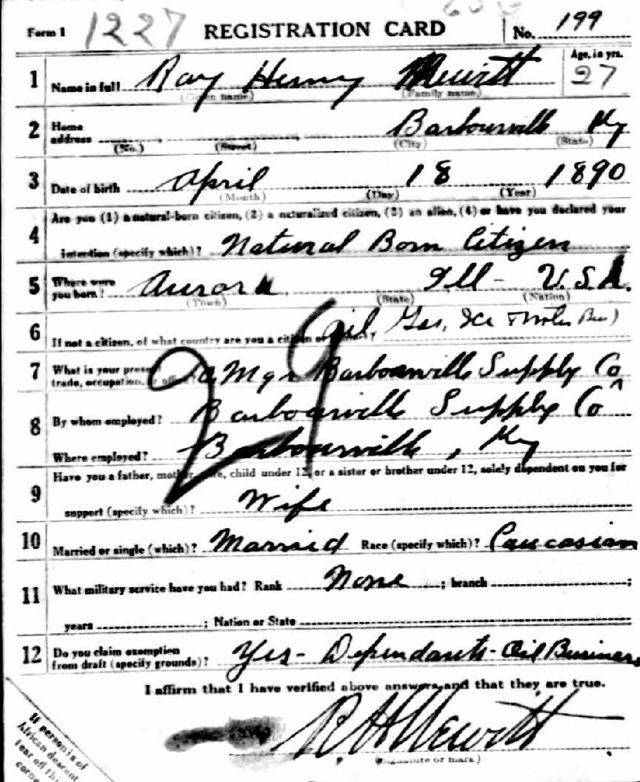 Form 1 1227 REGISTRATION CARD No. 199
1 Name in full Ray Henry Age, in yrs. 27
(Given name) (Family name)
2 Home address Barbourville Ky
(No.) (Street) (City) (State)
3 Date of birth April 18 1890
(Month) (Day) (Year)
Are you (1) a natural-born citizen, (2) a naturalized citizen, (3) an alien, (4) or have you declared your
4 intention (specify which)? Natural Born Citizen
5 Where were you born? Aurora Ill - U.S.A.
(Town) (State) (Nation)
(Oil, Gas, Ice
6 If not a citizen, of what country are you a citizen
7 What is your present trade, occupation, or office? Mgr Barbourville Supply Co
8 By whom employed? Barbourville Supply Co
Where employed? Barbourville, Ky
29
Have you a father, mother, wife, child under 12, or a sister or brother under 12, solely dependent on you for
9 support (specify which)? Wife
10 Married or single (which)? Married Race (specify which)? Caucasian
11 What military service have you had? Rank None ; branch ;
years ; Nation or State
12 Do you claim exemption from draft (specify grounds)? Yes - Dependants - Oil Business
I affirm that I have verified above answers and that they are true.
R H
(Signature or mark)
If person is of
African descent
tear off this
corner